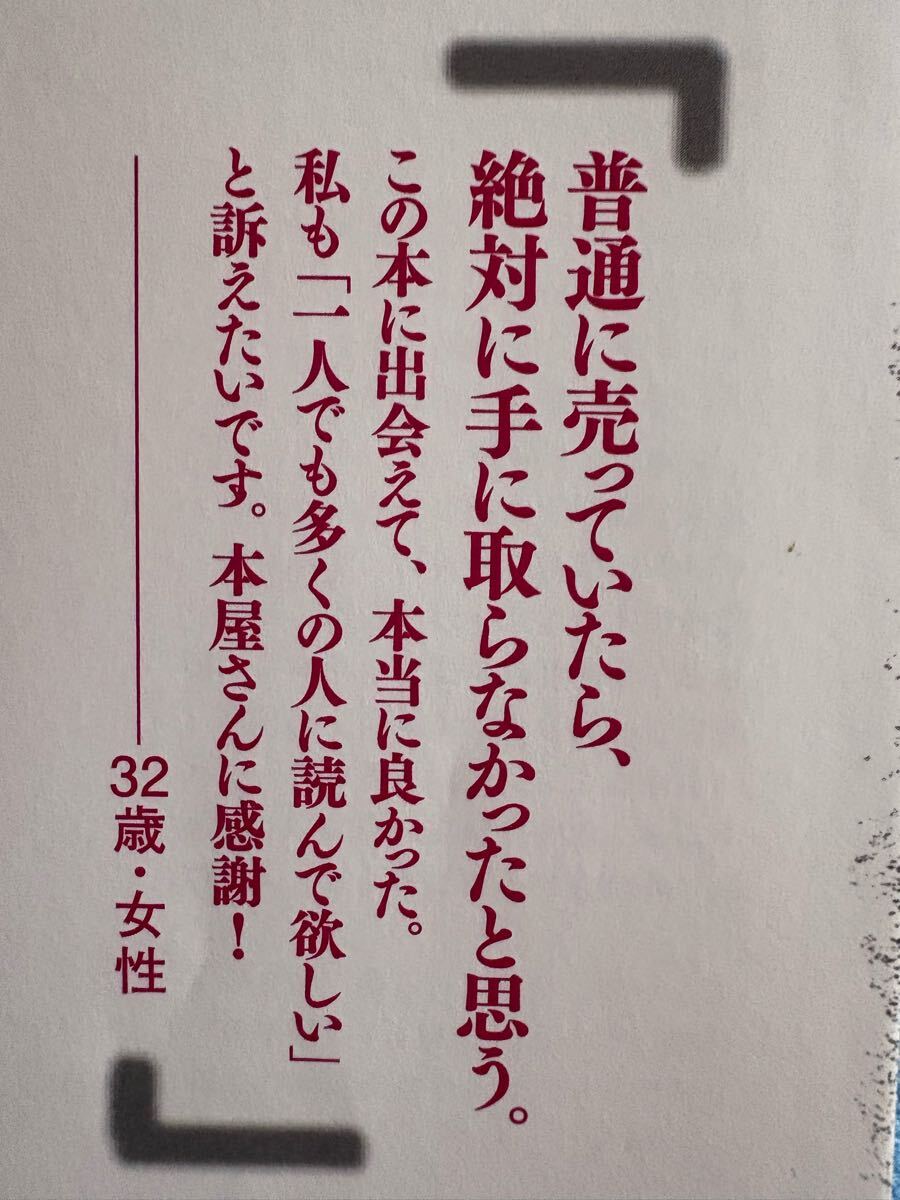 普通に売っていたら、
絶対に手に取らなかったと思う。
この本に出会えて、本当に良かった。
私も「一人でも多くの人に読んで欲しい」
と訴えたいです。本屋さんに感謝！
32歳・女性